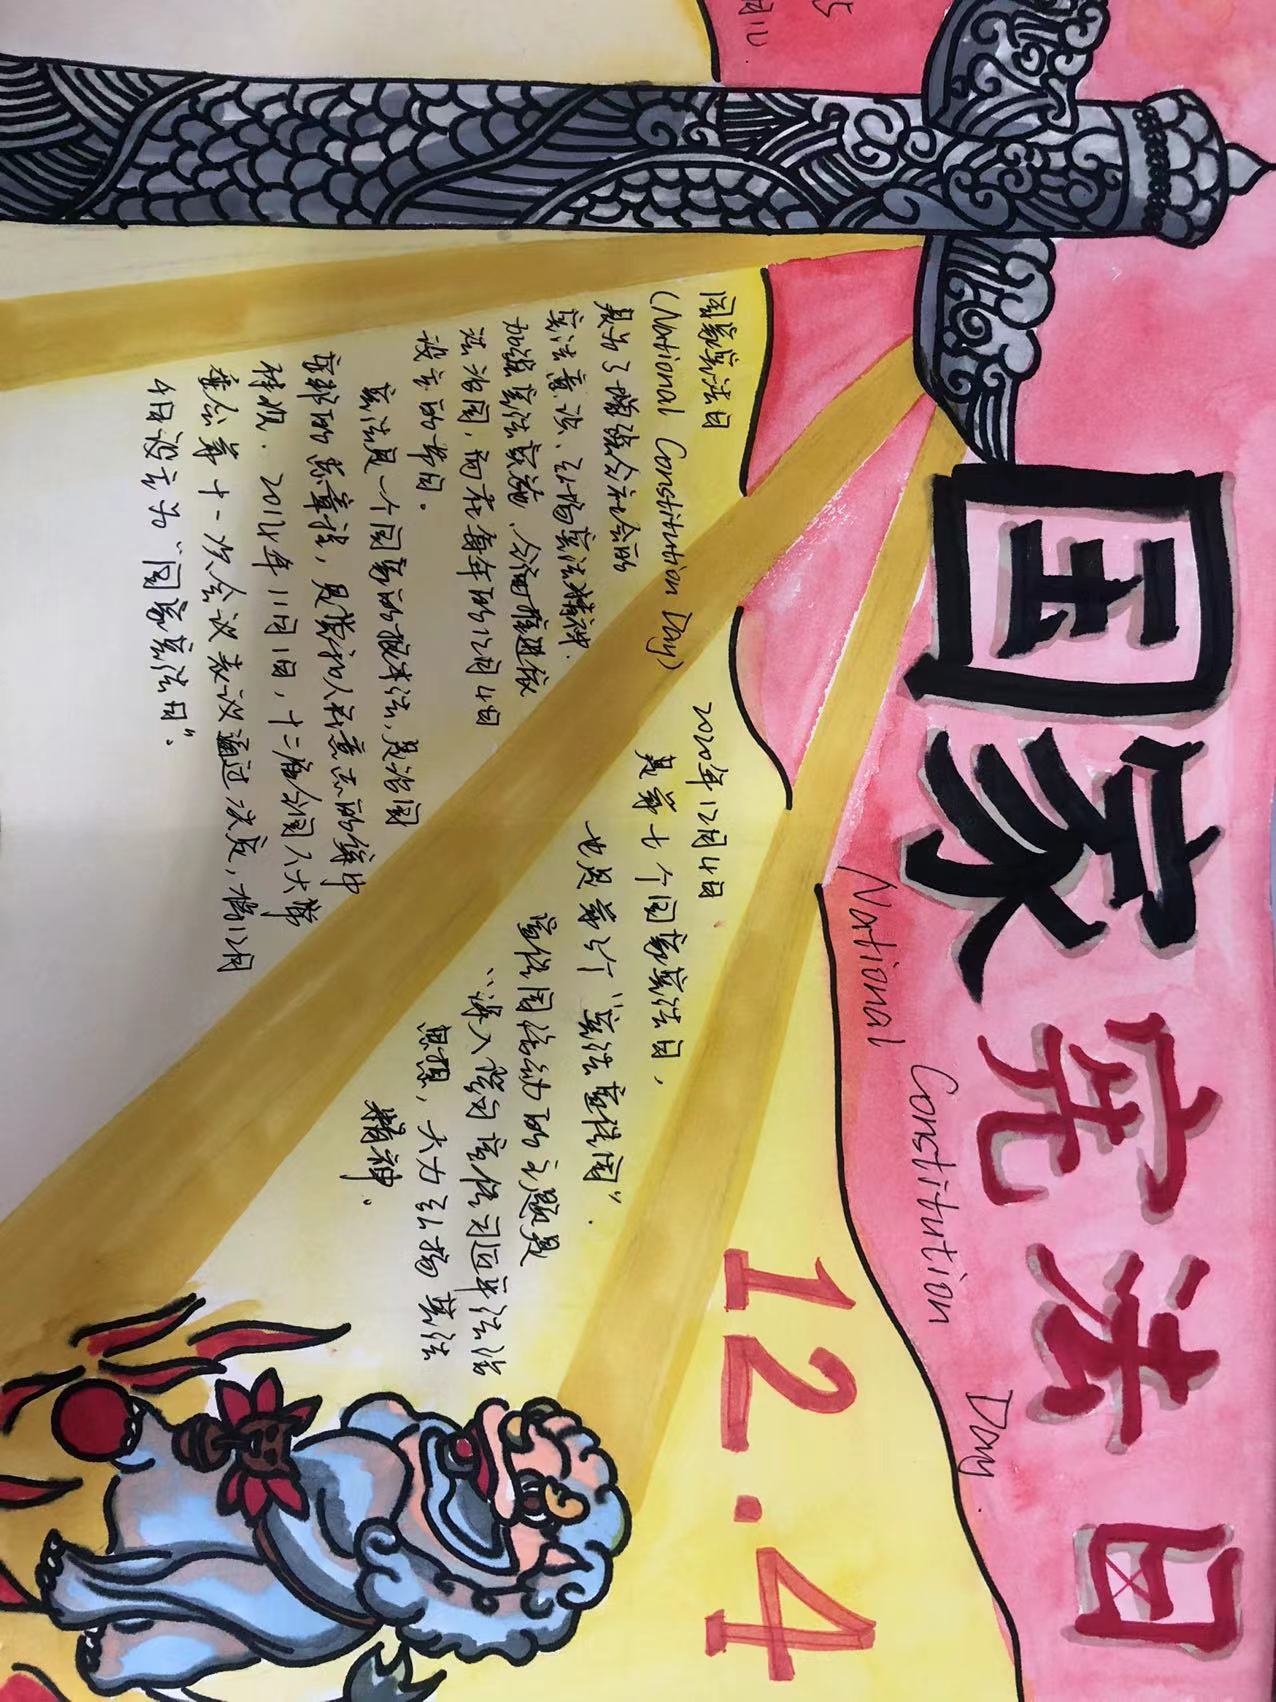 国家宪法日
National Constitution Day
12.4
国家宪法日
(National Constitution Day)
是为了增强全社会的
宪法意识、弘扬宪法精神、
加强宪法实施、全面推进依
法治国,而在每年的12月4日
设立的节日。
宪法是一个国家的根本法,是治国
安邦的总章程,是党和人民意志的集中
体现. 2014年11月1日,十二届全国人大常
委会第十一次会议表决通过决定,将12月
4日设立为“国家宪法日”.
2020年12月4日
是第七个国家宪法日,
也是第三个“宪法宣传周”.
宣传周活动的主题是
“深入学习宣传习近平法治
思想,大力弘扬宪法
精神.